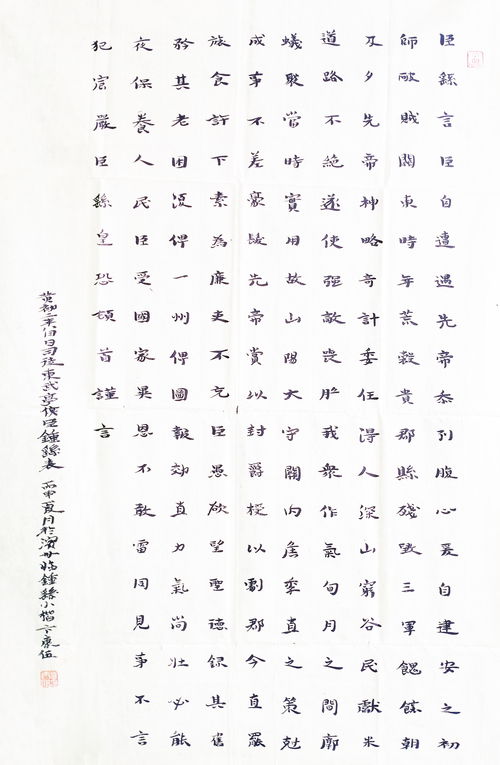 臣繇言臣自遭遇先帝忝列腹心爰自建安之初
師破賊關東時年荒穀貴郡縣殘毀三軍餽饟朝
及夕先帝神略奇計委任得人深山窮谷民獻米
道路不絕遂使強敵喪膽我衆作氣旬月之間廓
蟻聚當時實用故山陽大守關內侯季直之策剋
成事不差豪髮先帝賞以封爵授以劇郡今直罷
旅食許下素為廉吏不充臣愚欲望聖德錄其舊
矜其老困復俾一州俾圖報效直力氣尚壯必能
夜保養人民臣受國家異恩不敢雷同見事不言
犯宸嚴臣繇皇恐頓首謹言
黃初二年八月日司徒東武亭侯臣鍾繇表 丙申夏月於濱 臨鍾繇小楷